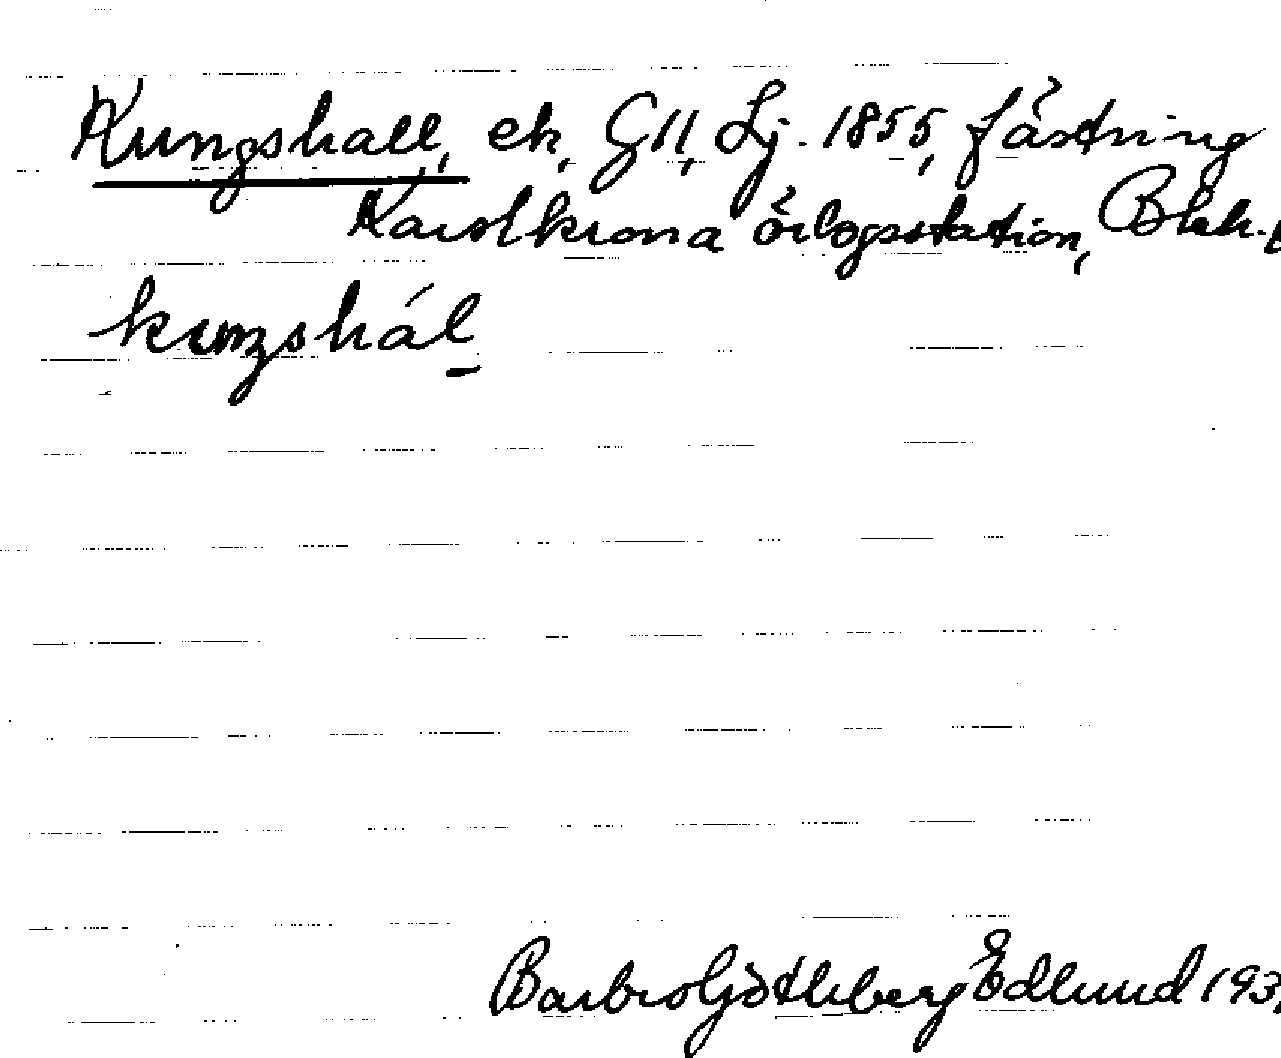 Kungshall, ek, GII, Lj. 1855, fästning
Karlskrona örlogsstation, Blek.
kuŋshál
Barbro Götleberg Edlund 193